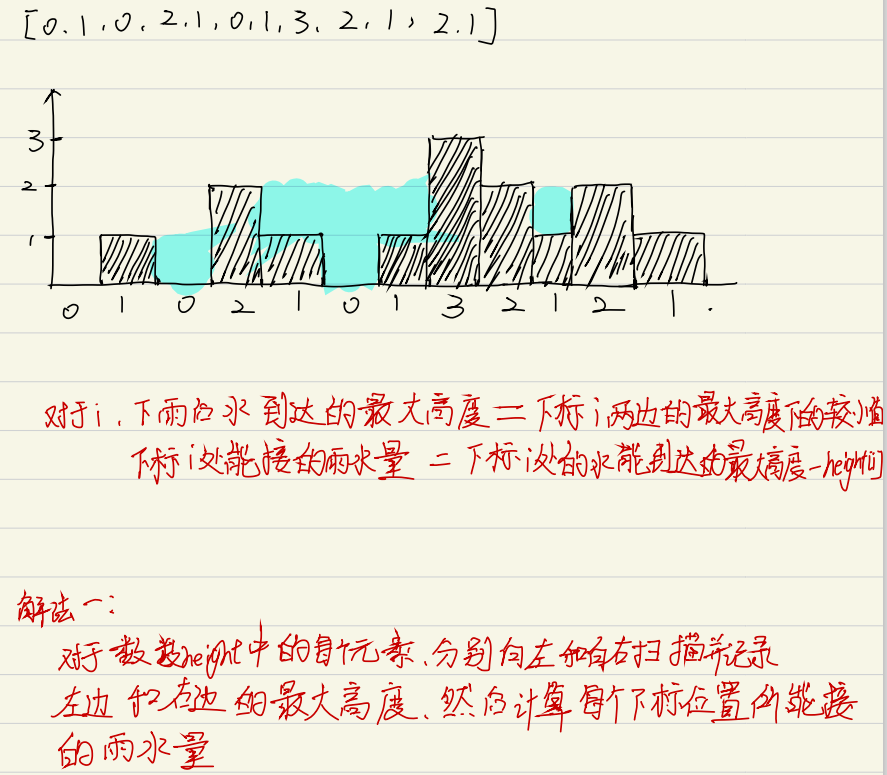 [0.1,0,2.1,0,1,3.2,1,2.1]
3
2
1
0 1 0 2 1 0 1 3 2 1 2 1 .
对于i,下雨后水到达的最大高度=下标i两边的最大高度下的较小值
下标i处能接的雨水量=下标i处的水能到达的最大高度-height[i]
解法一:
对于数数height中的每个元素,分别向左和向右扫描并记录
左边和右边的最大高度,然后计算每个下标位置所能接
的雨水量